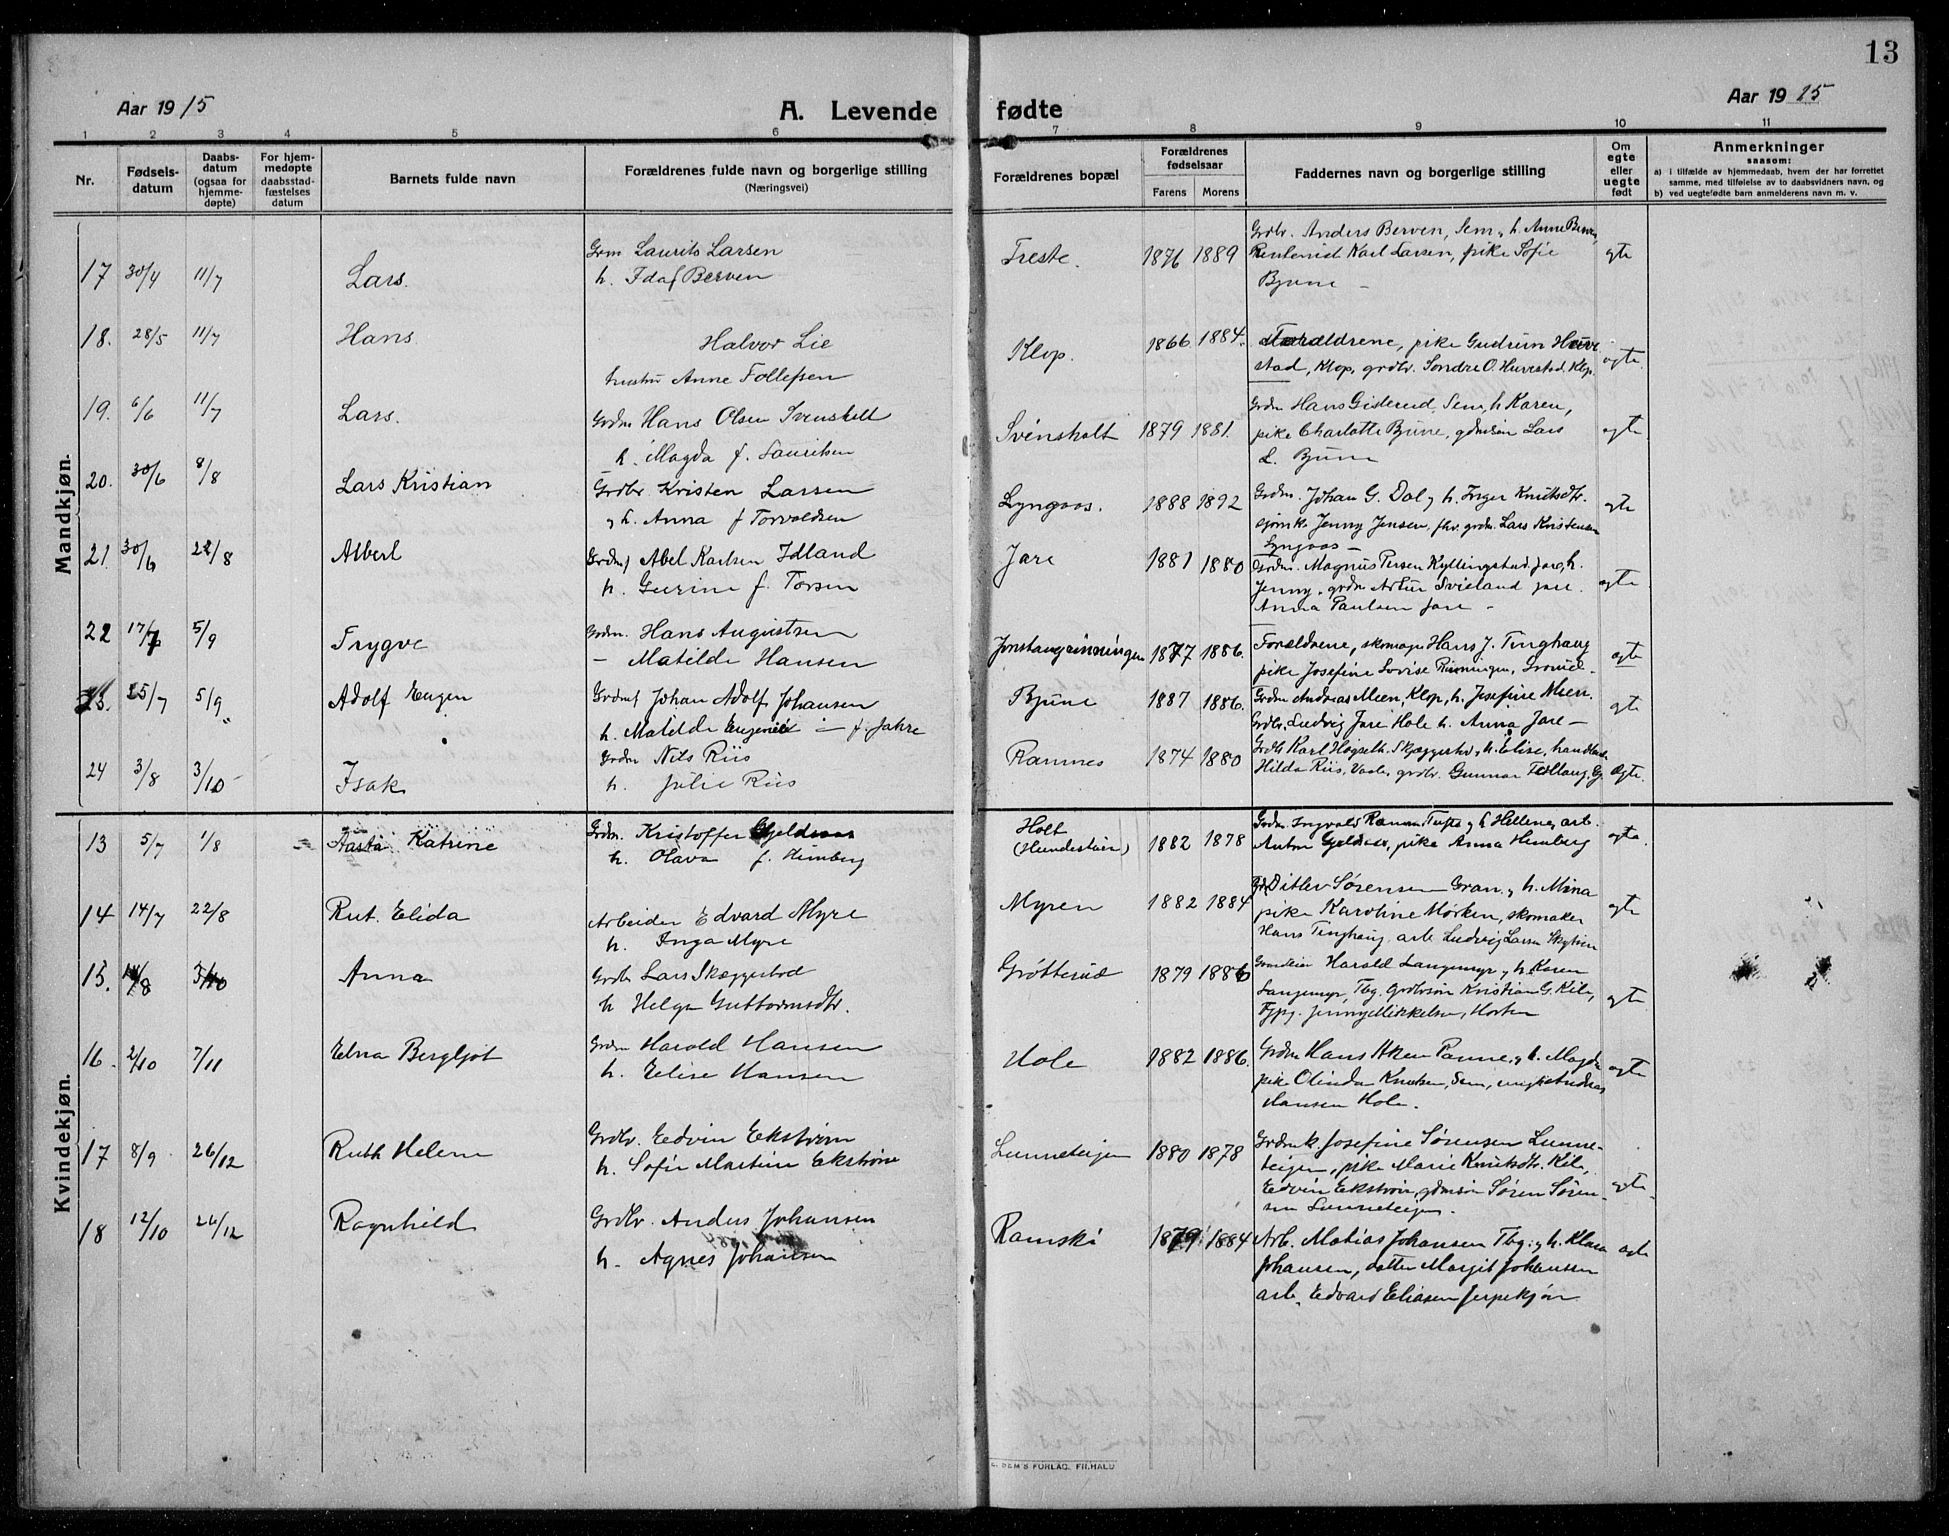 13
Aar 1915
A. Levende fødte
Aar 1915
1 2 3 4 5 6 7 8 9 10 11
Nr.
Fødsels-
datum
Daabs-
datum
(ogsaa for
hjemme-
døpte)
For hjem-
medøpte
daabsstad-
fæstelses
datum
Barnets fulde navn
Forældrenes fulde navn og borgerlige stilling
(Næringsvei)
Forældrenes bopæl
Forældrenes
fødselsaar
Farens Morens
Faddernes navn og borgerlige stilling
Om
egte
eller
uegte
født
Anmerkninger
saasom:
a) i tilfælde av hjemmedaab, hvem der har forrettet
samme, med tilføielse av to daabsvidners navn, og
b) ved uegtefødte barn anmelderens navn m. v.
Mandkjøn.
17 30/4 11/7 Lars.
Laurits Larsen
h. Ida f Berven
Freste. 1876 1889
Grdbr. Anders Berven, Sem, h. Anne Berven,
Karl Larsen, pike Sofie
Bjune —
egte
18. 28/5 11/7 Hans
Halvor Lie
hustru Anne Follefsen
Klop. 1866 1884.
Forældrene, pike Gudrun Huve
stad, Klop, grdbr. Sondre O. Huvestad, Klop.
egte
19. 6/6 11/7 Lars.
Grdm Hans Olsen Svensholt
h. Magda f. Lauritsen
Svensholt 1879 1881.
Grdm Hans Gisterud, Sem, h Karen,
pike Charlotte Bjune, gdmsøn Lars
L. Bjune
egte
20. 30/6 8/8 Lars Kristian
Grdbr. Kristen Larsen
og h. Anna f Torvaldsen
Lyngaas. 1888 1892
Grdm. Johan G. Dal og h. Inger Knutsdtr.
Jenny Jensen, fhv. grdm. Lars Kristensen
Lyngaas —
egte
21. 30/6 22/8 Albert
Grdmd Abel Karlsen Idland
h. Gurine f. Torsen
Jare 1881 1880
Grdm. Magnus Persen Kyllingstad, Jare, h.
Jenny, grdm Artur Svieland Jare.
Anna Paulsen Jare —
egte
22 17/7 5/9 Trygve
Grdm. Hans Augustsen
– Matilde Hansen
Jonstangrinningen 1877 1886.
Forældrene, skomager Hans J. Tinghaug
pike Josefine Lovise Rinningen,
egte
23. 25/7 5/9 Adolf Eugen
Grdmd Johan Adolf Johansen
h. Matilde Eugenie – f. Jahre
Bjune 1887 1886.
Grdm Andreas Moen, Klop, h. Josefine Moen.
Grdbr. Ludvig Jare Hole h. Anna Jare —
egte
24 3/8 3/10 Isak
Grdm Nils Riis
h. Julie Riis
Ramnes 1874 1880
Grdbr Karl Høgseth, Skjæggestad, og h. Elise,
Hilda Riis, Vaale, grdbr. Gunnar
egte.
Kvindekjøn.
13 5/7 1/8 Aasta Katrine
Grdm. Kristoffer Gjeldsaas
h. Olava f. Himberg
Holt
1882 1878
Grdm. Ingvald Ramm Tufte og h Hellene, arb.
Anton Gjeldsaas, pike Anna Himberg
egte.
14 14/7 22/8 Rut. Elida
Arbeider Edvard Myre
h. Inga Myre
Myren 1882 1884
Ditlev Sørensen Gran, og h. Mina
pike Karoline Mørken, skomaker
Hans Tinghaug, arb Ludvig Larsen
egte
15. 3/10 Anna
Grdbr Lars Skæggestad
h Helga Guttormsdtr.
Grøtterud 1879 1886
Harald Langemyr og h. Karen
Langemyr, Tbg. Grdbrsøn Kristian G. Kile,
Jenny Mikkelsen, Horten
egte
16. 2/10 7/11 Edna Bergljot
Grdm Harald Hansen
h. Elise Hansen
Hole 1882 1886.
Grdm Hans Aken Panne, og h. Magda
pike Olinda Knutsen, Sem, ungkar Andreas
Hansen Hole.
egte
17 8/9 26/12 Ruth Helene
Grdbr. Edvin Ekstrøm
h. Sofie Martine Ekstrøm
Lunneteigen 1880 1878
Grdmk. Josefine Sørensen Lunne-
teigen, pike Marie Knutsdtr. Kile,
Edvin Ekstrøm, gdmsøn Søren Søren-
sen Lunneteigen.
egte
18 12/10 26/12 Ragnhild
Grdbr. Anders Johansen
h. Agnes Johansen
Ramski 1879 1884
Arb. Matias Johansen Tbg. og h. Klara
Johansen, datter Margit Johansen
arb. Edvard Eliasen Jerpekjøn
egte
E. SEM'S FORLAG, FR.HALD